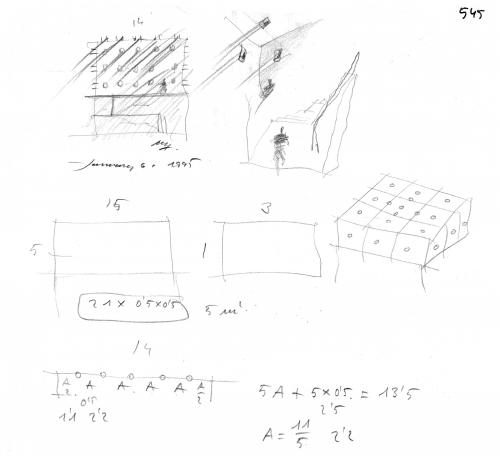 545
14
January 6. 1995
15
3
5
1
21 x 0'5x0'5
5 m²
14
A A A A A A
2 2
0'5
1'1 2'2
5A + 5x0'5 = 13'5
2'5
A = 11 2'2
5